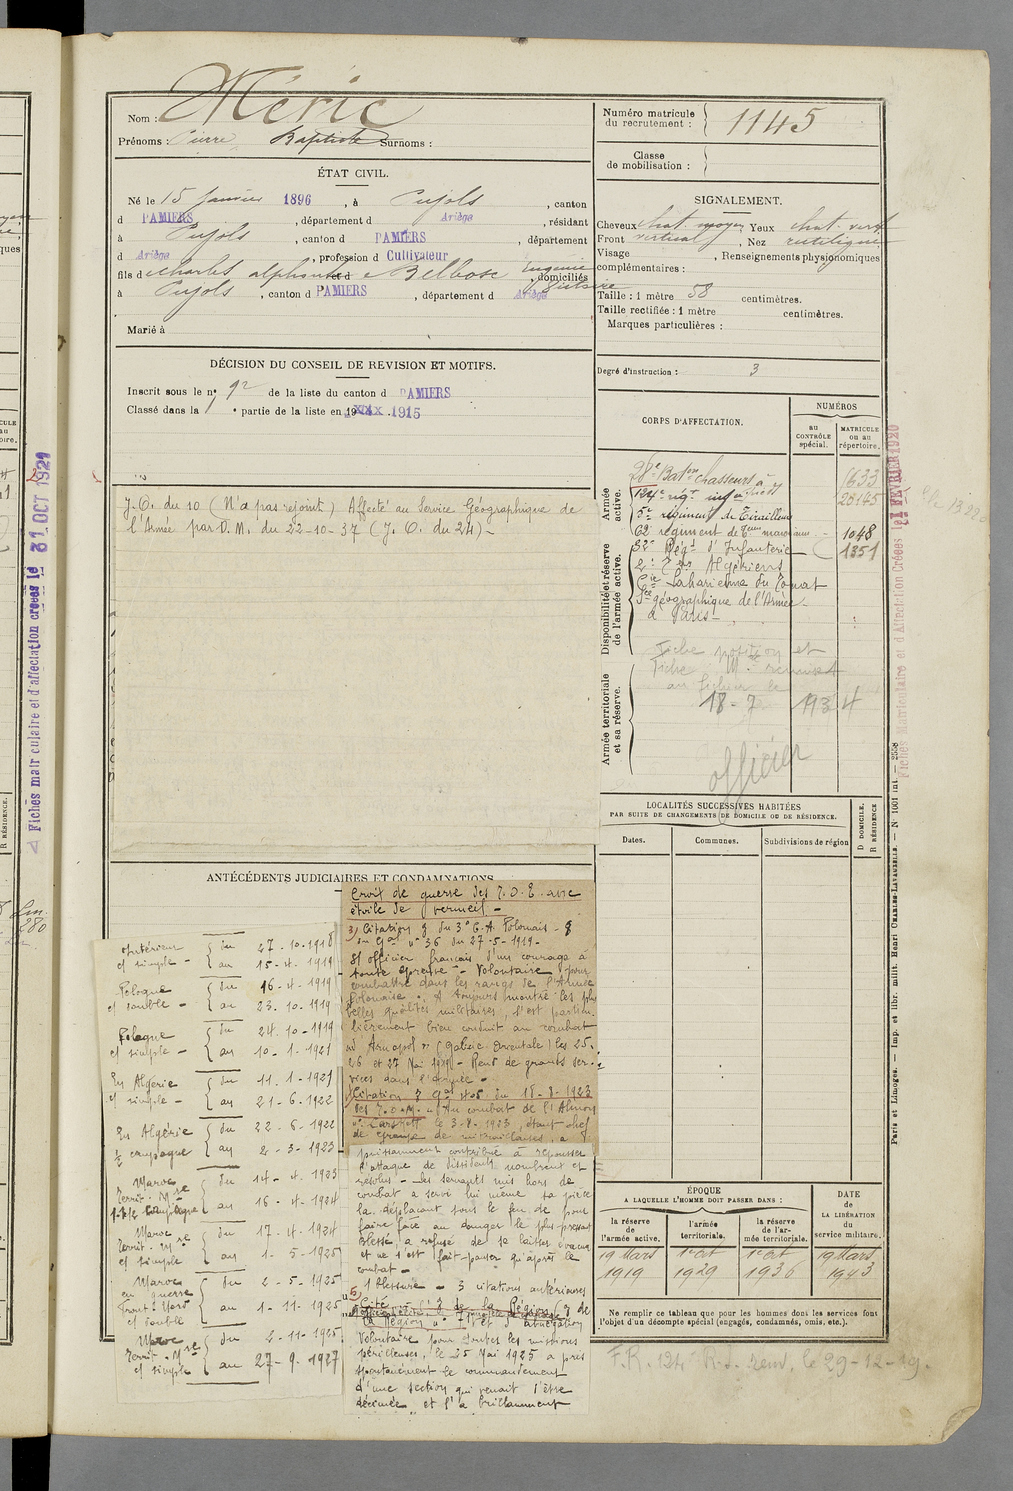 Nom : Méric
Prénoms : Pierre Baptiste Surnoms :
ÉTAT CIVIL.
Né le 15 Janvier 1896, à Pujols, canton
d PAMIERS, département d Ariège, résidant
à Pujols, canton d PAMIERS, département
d Ariège, profession d Cultivateur
fils d e Charles Alphonse et d e Belbosc Eugénie
, domiciliés
à Pujols, canton d PAMIERS, département d Ariège
Marié à
DÉCISION DU CONSEIL DE REVISION ET MOTIFS.
Inscrit sous le n° 92 de la liste du canton d PAMIERS
Classé dans la 1 e partie de la liste en 1915
J.O. du 10 (N'a pas rejoint) Affecté au Service Géographique de
l'Armée par D.M. du 22-10-37 (J.O. du 24) -
ANTÉCÉDENTS JUDICIAIRES ET CONDAMNATIONS
Intérieur { du 27-10-1918
cs simple - { au 15-4-1919
Pologne { du 16-4-1919
cs double - { au 23.10.1919
Pologne { du 24.10-1919
cs simple - { au 10-1-1921
En Algérie { du 11.1-1921
cs simple - { au 21-6-1922
En Algérie { du 22-6-1922
1/2 campagne { au 2-3-1923
Maroc { du 14-4-1923
Territ. Mre
campagne { au 16-4-1924
Maroc { du 17.4-1924
Territ. Mre
cs simple { au 1-5-1925
Maroc { du 2-5-1925
en guerre
Front Nord { au 1-11-1925
cs double
Maroc { du 2-11-1925
Territ. Mre
cs simple { au 27-9-1927
Croix de guerre des T.O.E. avec
étoile de vermeil -
3) Citation g du 3e C.A. Polonais - g
n° 36 du 27-5-1919 -
Sr officier français d'un courage à
toute épreuve - Volontaire pour
combattre dans les rangs de l'Armée
Polonaise. A toujours montré les plus
belles qualités militaires, s'est particu-
lièrement bien conduit au combat
(Galicie Orientale) les 25-
26 et 27 Mai 1919 - Rend de grands ser-
vices dans l'armée -
Citation du 18-8-1923
des T.O.M. - Au combat de
le 3-8-1923, étant chef
de groupe de mitrailleuses, a
puissamment contribué à repousser
l'attaque de dissidents nombreux et
résolus - les servants mis hors de
combat a servi lui même sa pièce
la déplaçant sous le feu de pour
faire face au danger le plus pressant
Blessé, a refusé de se laisser évacuer
et ne s'est fait panser qu'après le
combat -
1 blessure - 3 citations antérieures
5) Cité
Volontaire pour toutes les missions
périlleuses, le 25 Mai 1925 a pris
spontanément le commandement
d'une section qui venait d'être
décimée et l'a brillamment
Numéro matricule
du recrutement : 1145
Classe
de mobilisation :
SIGNALEMENT.
Cheveux chat. moyen Yeux chat. vert
Front vertical, Nez rectiligne
Visage , Renseignements physionomiques
complémentaires :
Taille : 1 mètre 58 centimètres.
Taille rectifiée : 1 mètre centimètres.
Marques particulières :
Degré d'instruction : 3
CORPS D'AFFECTATION.
NUMÉROS
au CONTRÔLE spécial.
MATRICULE ou au répertoire.
Armée active.
28e Baton Chasseurs à 1633
124e rigt infanterie 20145
5e régiment de Tirailleurs
Disponibilité et réserve de l'armée active.
62e régiment de Tirs marocains - 1048
32e Régt d'Infanterie - 1351
2e Tirs Algériens
Cie Saharienne du Touat
Sce géographique de l'Armée -
à Paris -
Armée territoriale et sa réserve.
Fiche position et
Fiche Mle remises
au fichier le
18-7 1934
officier
LOCALITÉS SUCCESSIVES HABITÉES
PAR SUITE DE CHANGEMENTS DE DOMICILE OU DE RÉSIDENCE.
Dates. Communes. Subdivisions de région
D DOMICILE.
R RÉSIDENCE
ÉPOQUE
A LAQUELLE L'HOMME DOIT PASSER DANS :
la réserve de l'armée active.
l'armée territoriale.
la réserve de l'armée territoriale.
DATE
de
LA LIBÉRATION
du
service militaire.
19 Mars 1er Oct 1er Oct 19 Mars
1919 1929 1936 1943
Ne remplir ce tableau que pour les hommes dont les services font
l'objet d'un décompte spécial (engagés, condamnés, omis, etc.).
F.R. 124 R.I. renv. le 29-12-19.
Fiches matriculaire et d'affectation créées le 31 OCT 1921
Fiches Matriculaire et d'Affectation Créées le FEVRIER 1920
Paris et Limoges. — Imp. et libr. milit. Henri CHARLES-LAVAUZELLE. — N° 1001 int. — 2558